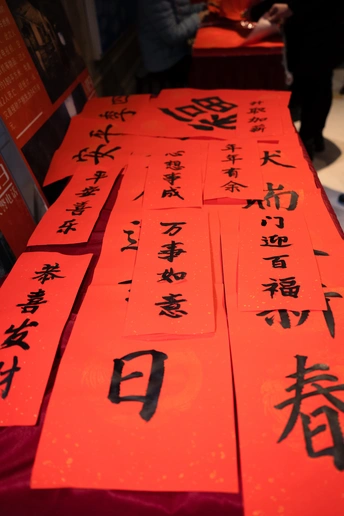 四季平安
福
升职加薪
平安喜乐
心想事成
年年有余
恭喜发财
万事如意
门迎百福
日
新春